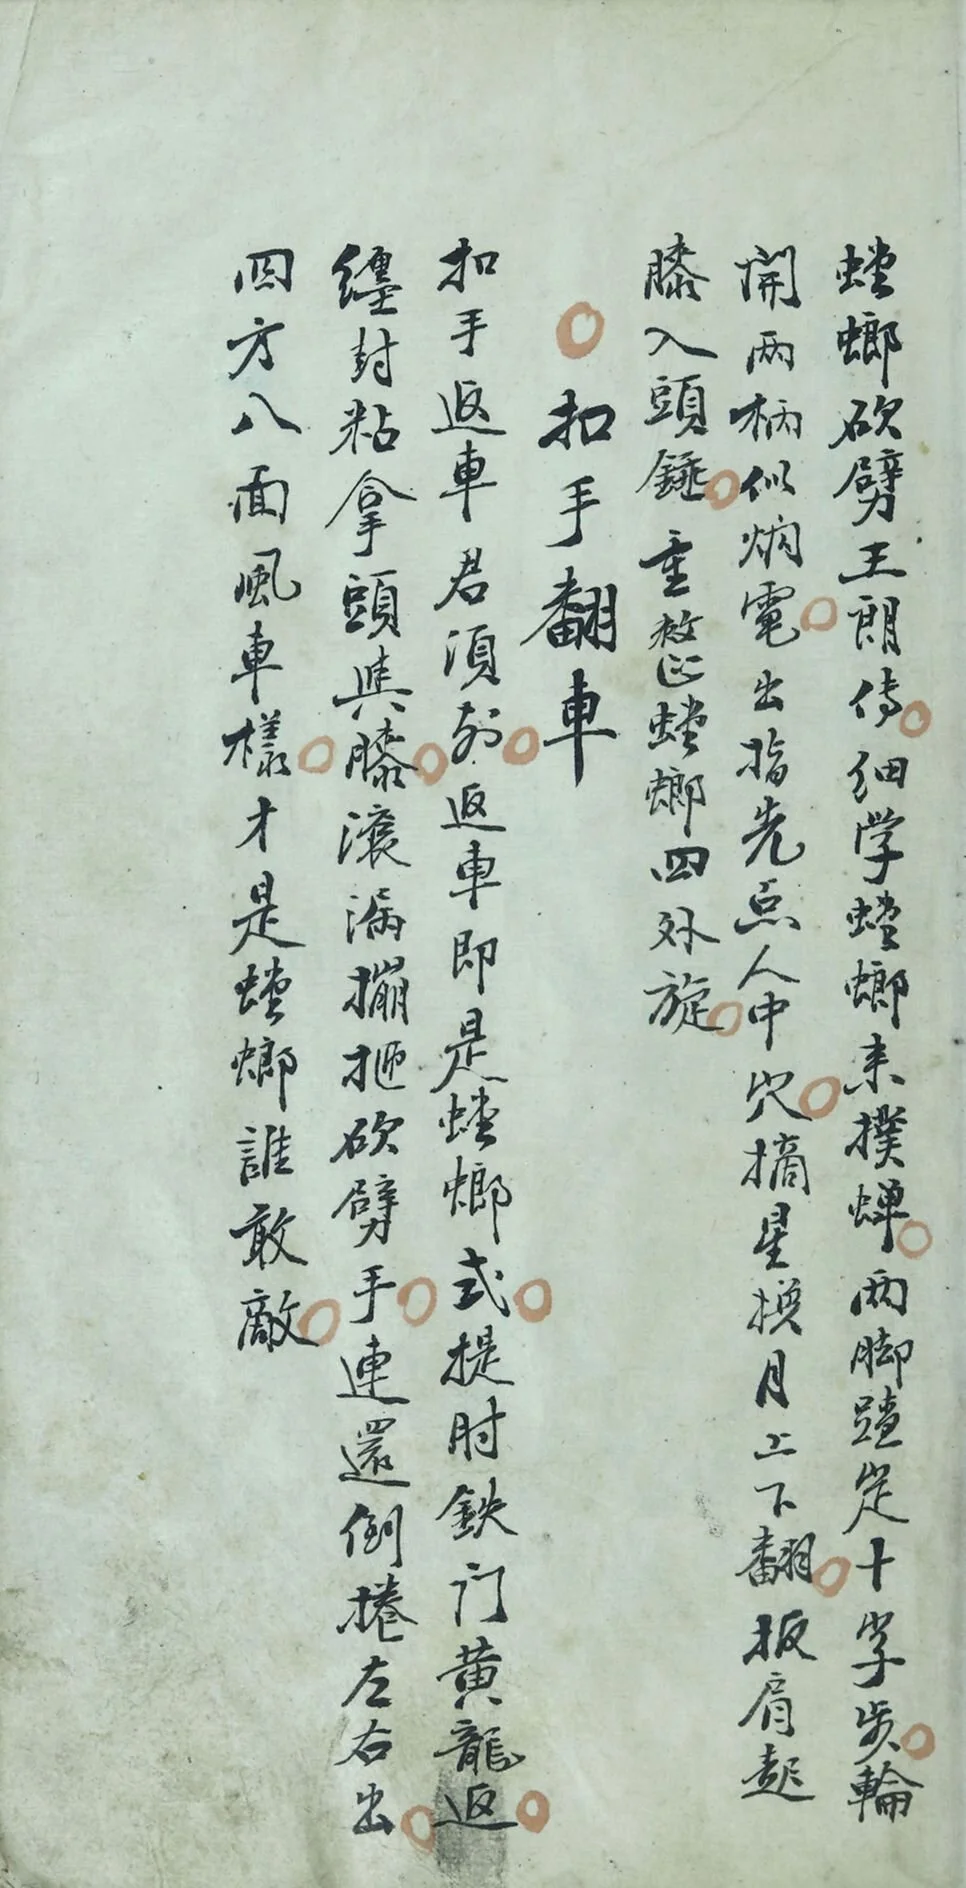 螳螂砍劈王朗传细学螳螂来撲蝉两脚蹅定十字步輪
開两柄似炳電出指先点人中穴摘星换月上下翻扳肩起
膝入頭錘重整螳螂四外旋
扣手翻車
扣手返車君須知返車即是螳螂式提肘鉄门黄龍返
纏封粘拿頭與膝滚漏掤砍劈手連還倒捲左右出
四方八面風車樣才是螳螂誰敢敵